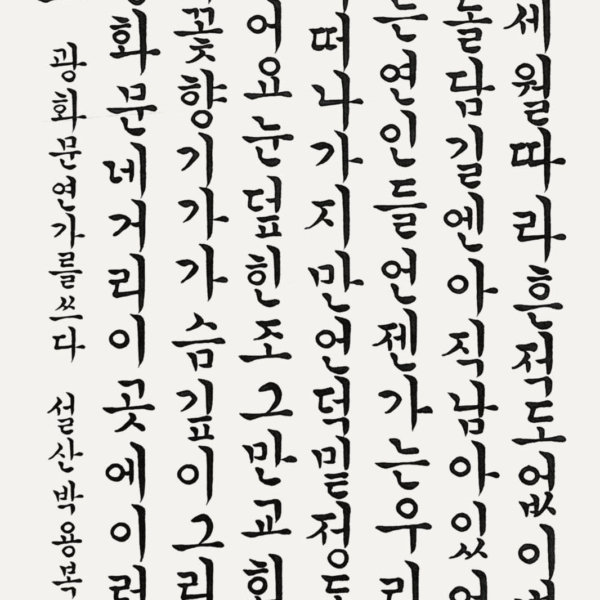 세월따라흔적도없이
돌담길엔아직남아있어
는연인들언젠가는우리
떠나가지만언덕밑정동
어요눈덮힌조그만교회
꽃향기가가슴깊이그리
화문네거리이곳에이런
광화문연가를쓰다 설산박용복